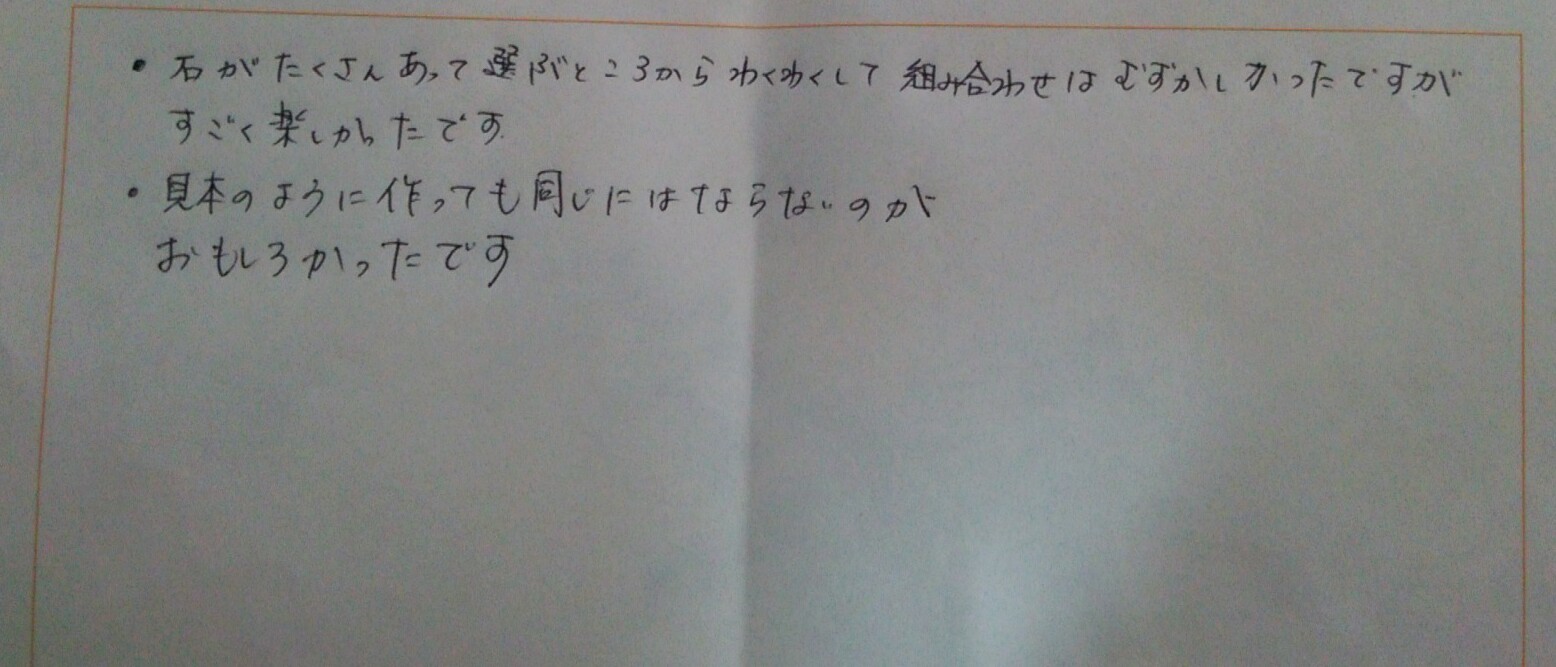 ・石がたくさんあって選ぶところからわくわくして組み合わせはむずかしかったですが
すごく楽しかったです
・見本のように作っても同じにはならないのが
おもしろかったです